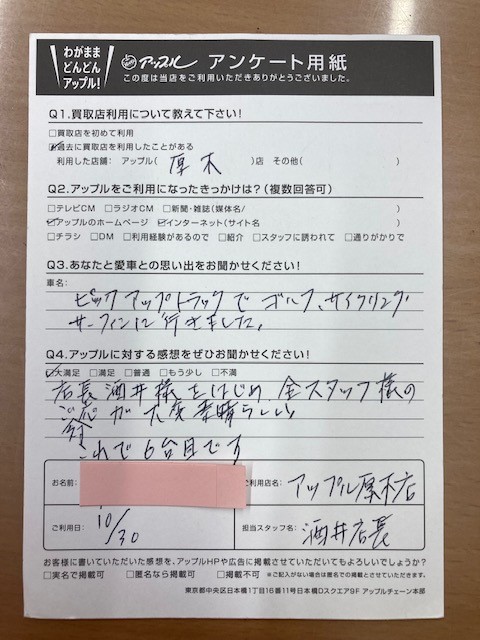 わがまま
どんどん
アップル!
アップル アンケート用紙
この度は当店をご利用いただきありがとうございました。
Q1.買取店利用について教えて下さい!
□買取店を初めて利用
☑過去に買取店を利用したことがある
利用した店舗: アップル( 厚木 )店 その他( )
Q2.アップルをご利用になったきっかけは?(複数回答可)
□テレビCM □ラジオCM □新聞・雑誌(媒体名/ )
☑アップルのホームページ ☑インターネット(サイト名 )
□チラシ □DM □利用経験があるので □紹介 □スタッフに誘われて □通りがかりで
Q3.あなたと愛車との思い出をお聞かせください!
車名:
ピックアップトラックで ゴルフ、サイクリング
サーフィンに行きました。
Q4.アップルに対する感想をぜひお聞かせください!
☑大満足 □満足 □普通 □もう少し □不満
店長 酒井様をはじめ、全スタッフ様の
ご応対が大変素晴らしい
これで6台目です
お名前:
ご利用店名: アップル厚木店
ご利用日: 10/30
担当スタッフ名: 酒井店長
お客様に書いていただいた感想を、アップルHPや広告に掲載させていただいてもよろしいでしょうか?
□実名で掲載可 □匿名なら掲載可 □掲載不可 ※ご記入がない場合は匿名での掲載とさせていただきます。
東京都中央区日本橋1丁目16番11号日本橋Dスクエア9F アップルチェーン本部